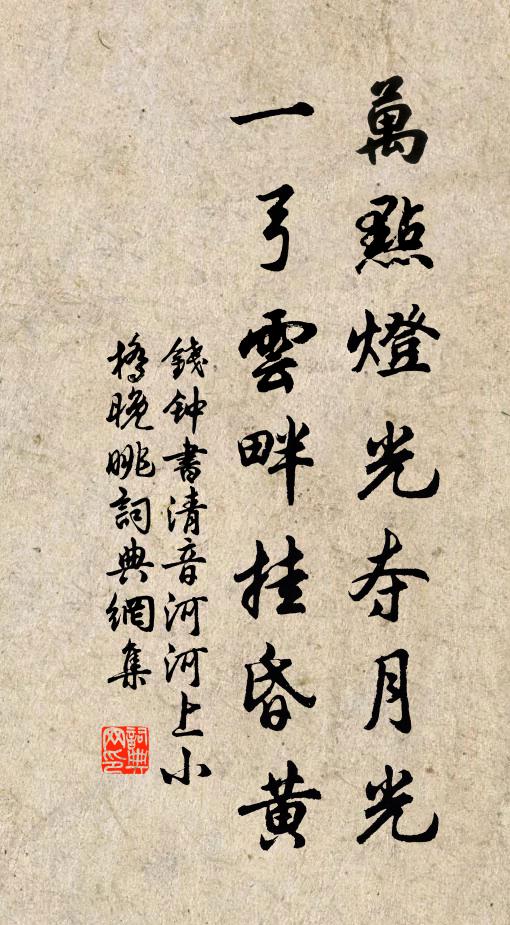 萬點燈光夺月光
一弓雲畔挂昏黄
錢钟書清音河河上小
橋晚眺詞典網集
詞典
网印